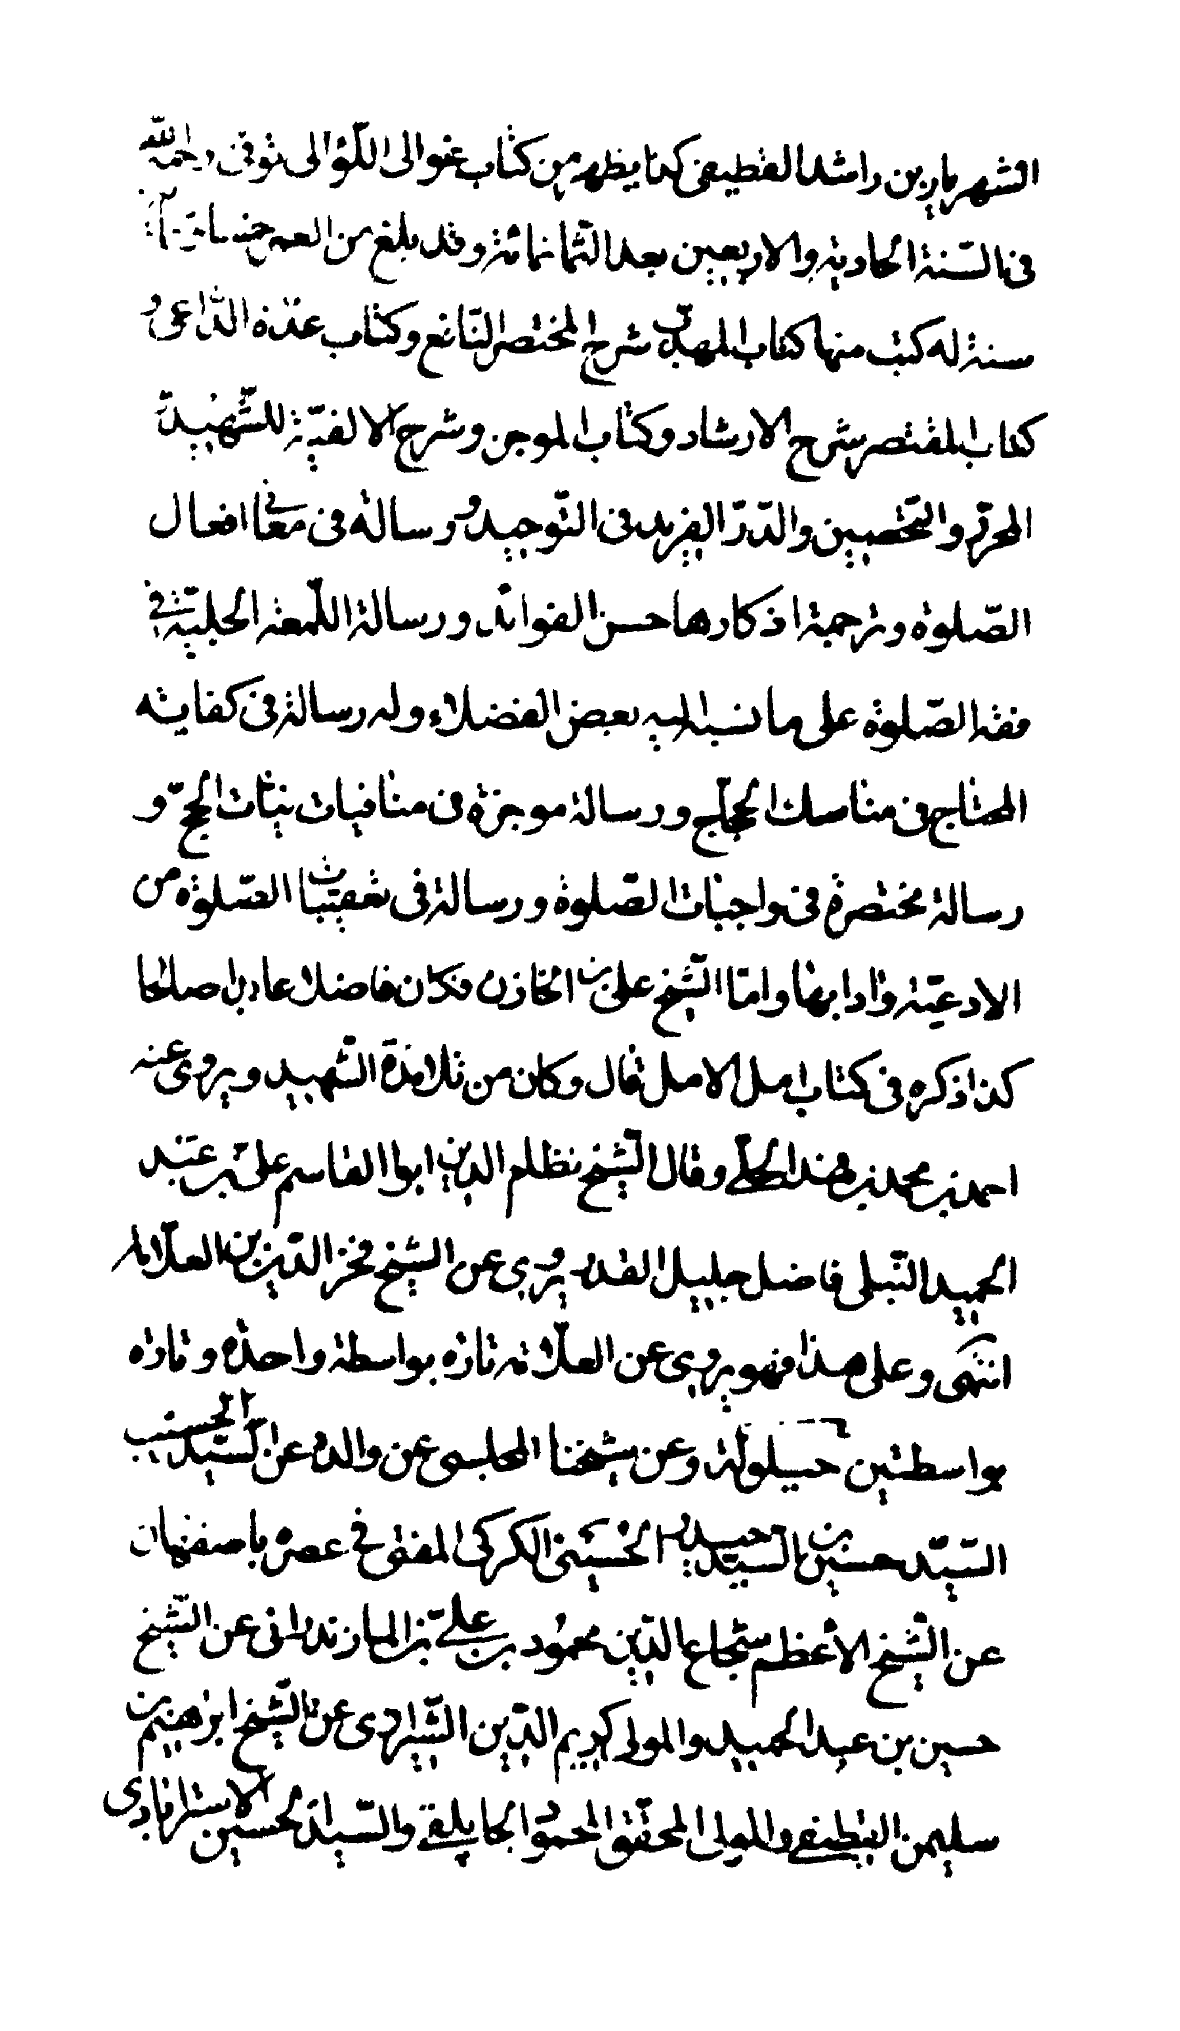 الشهريار بن راشد القطيفى كما يظهر من كتاب غوالى اللئالى توفى رحمه الله
فى السنة الحادية والاربعين بعد الثمانمائة وقد بلغ من العمر
سنة له كتب منها كتاب المهذب شرح المختصر النافع وكتاب عدة الداعى و
كتاب المقتصر شرح الارشاد وكتاب الموجز وشرح الالفيّة للشّهيد
المحرّر والتحصين والدّرّ الفريد فى التّوحيد ورسالة فى معانى افعال
الصّلوة وترجمة اذكارها حسن الفوائد ورسالة اللّمعة الجليّة فى
فقه الصّلوة على ما نسبه اليه بعض الفضلاء وله رسالة فى كفاية
المحتاج فى مناسك الحاج ورسالة موجزة فى منافيات نيّات الحجّ و
رسالة مختصرة فى واجبات الصّلوة ورسالة فى تعقيبات الصّلوة من
الادعيّة وادابها وامّا الشّيخ على بن الخازن فكان فاضلا عادلا صالحا
كذا ذكره فى كتاب امل الامل قال وكان من تلامذة الشّهيد ويروى عنه
احمد بن محمد بن فهد الحلّى وقال الشّيخ نظام الدين ابو القاسم على بن عبد
الحميد النّيلى فاضل جليل القدر يروى عن الشّيخ فخر الدّين بن العلّامة
انتهى وعلى هذا فهو يروى عن العلّامة تارة بواسطة واحدة وتارة
بواسطتين حيلولة وعن شيخنا المجلسى عن والده عن السّيّد الحسيب
السّيّد حسين بن السّيّد حيدر الحسينى الكركى المفتى فى عصره باصفهان
عن الشّيخ الأعظم شجاع الدّين محمود بن على المازندرانى عن الشّيخ
حسين بن عبد الحميد والمولى كريم الدّين الشّيرازى عن الشّيخ ابرهيم بن
سليمن القطيفى والمولى المحقّق المحمود الجابلقى والسّيد الحسين الاسترابادى